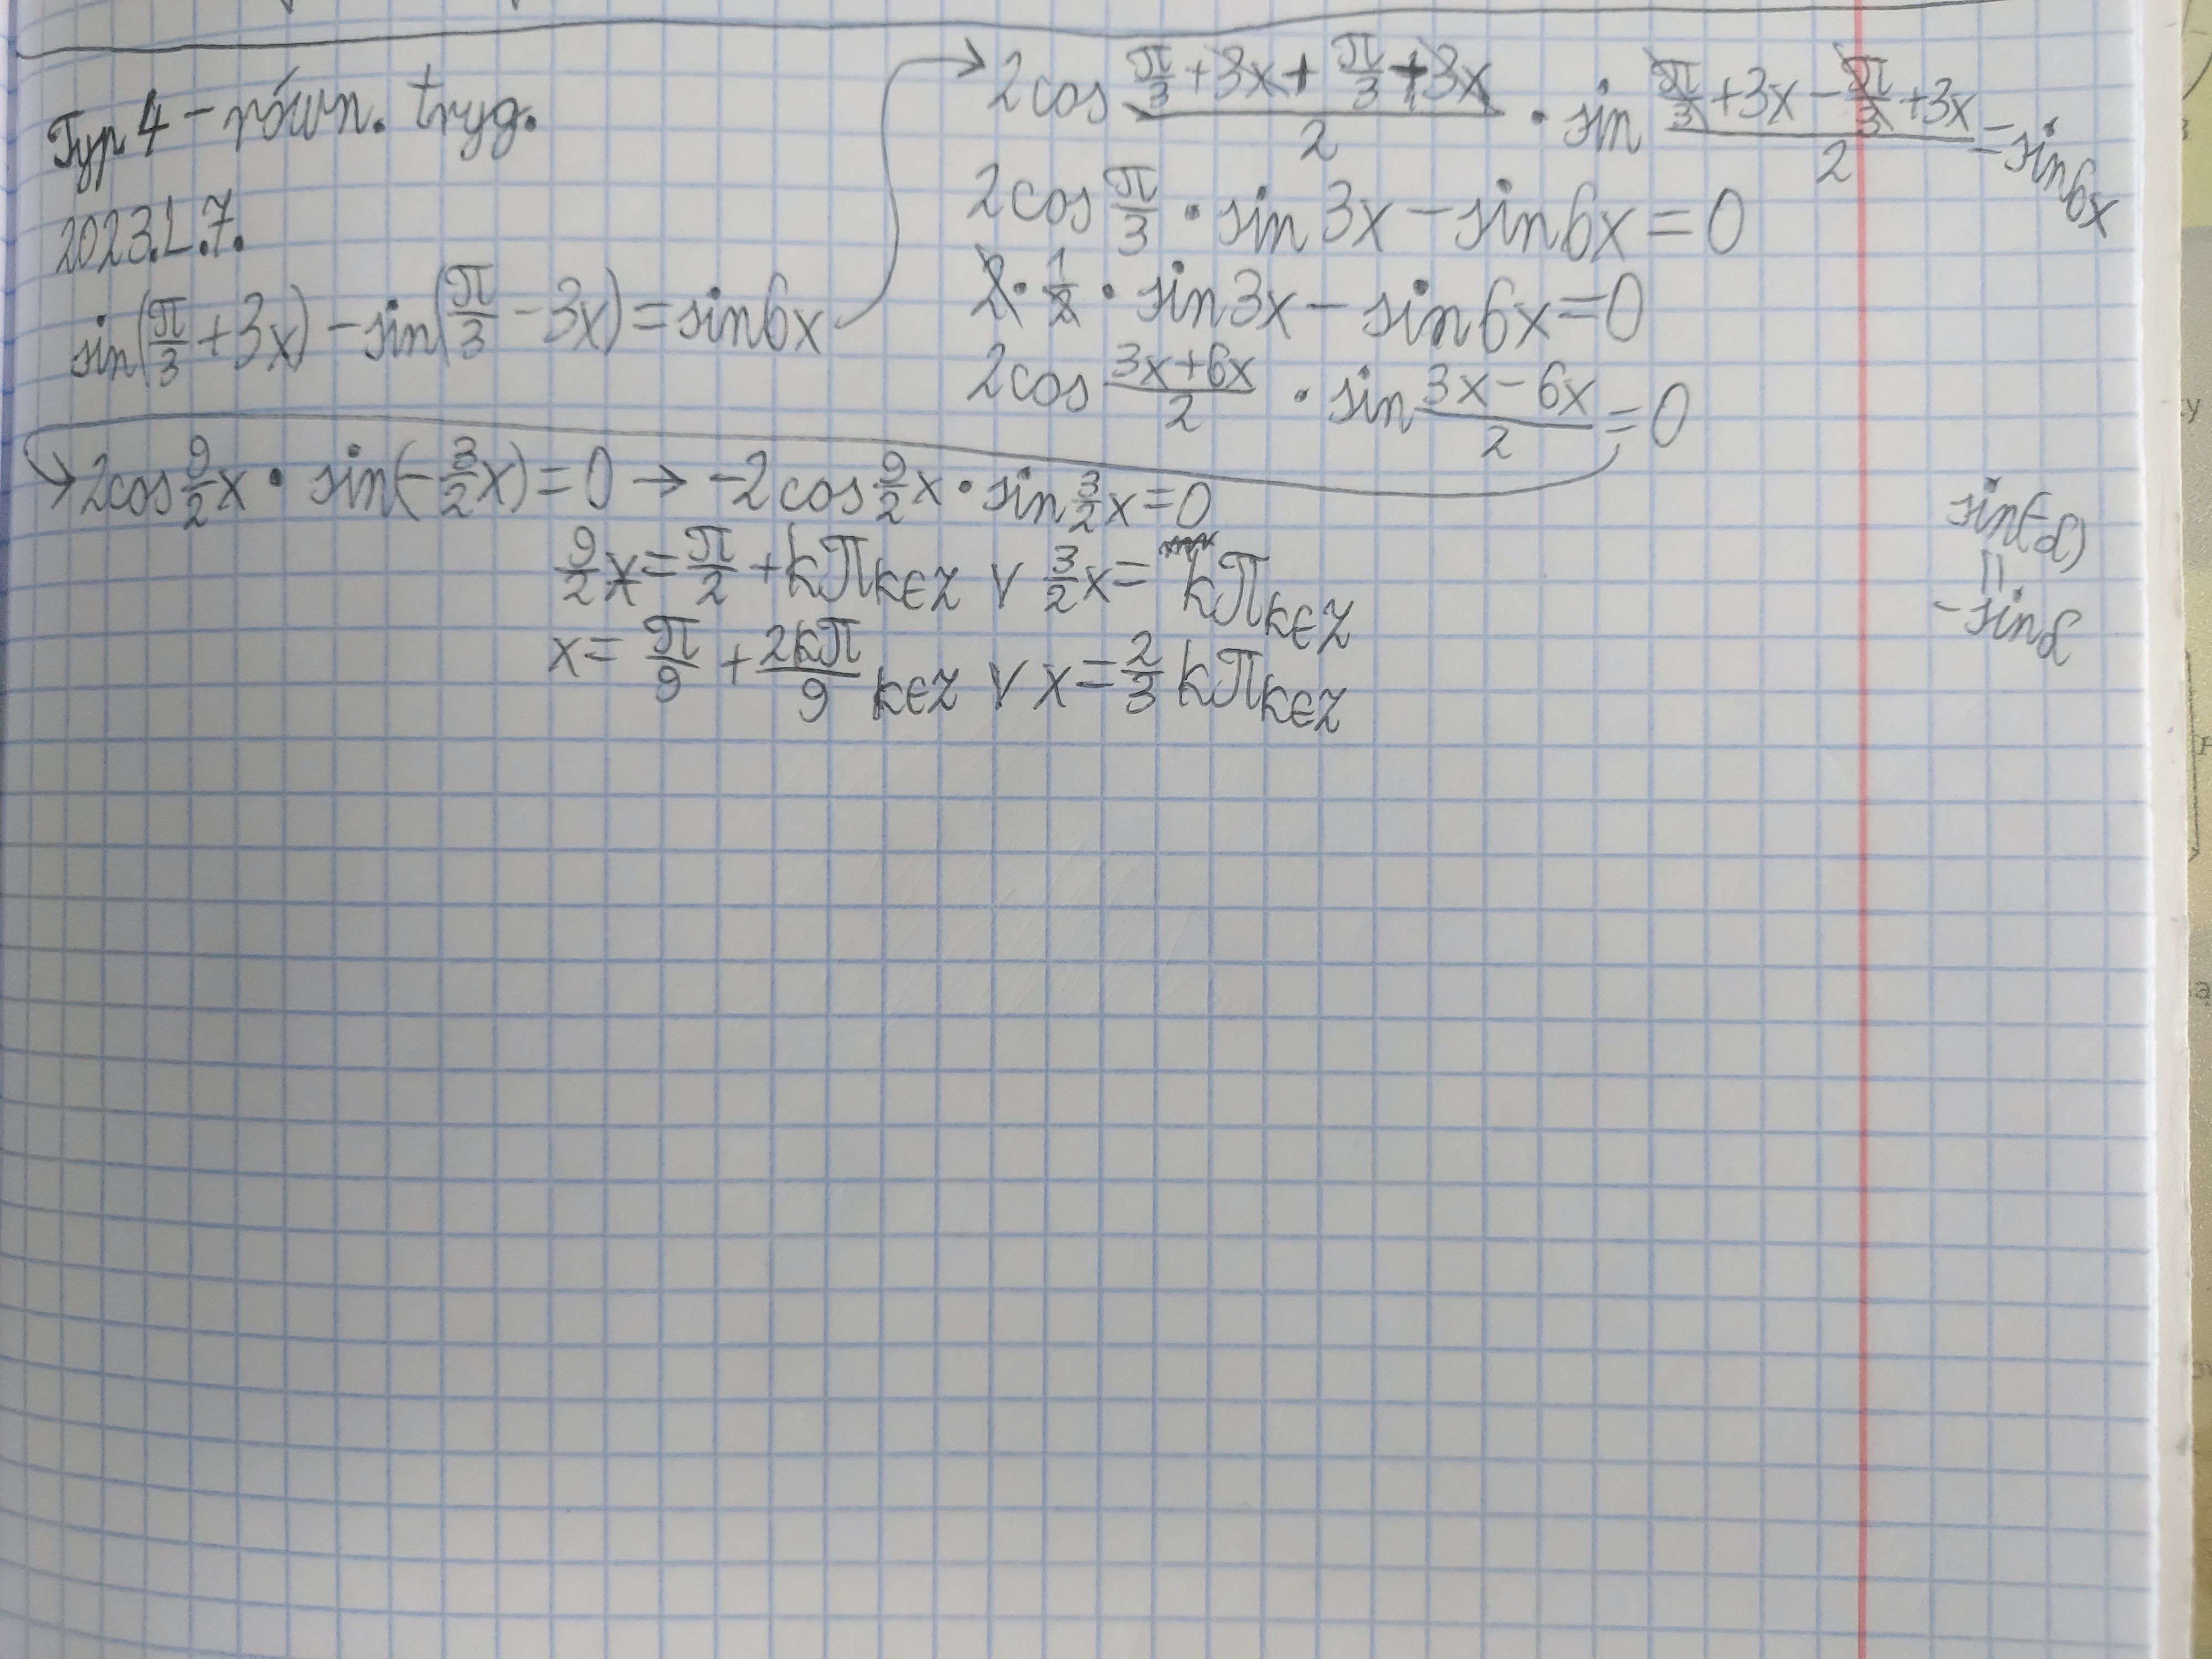 Typ 4 - równ. tryg.
2023.L.7.
sin(π/3 + 3x) - sin(π/3 - 3x) = sin6x
→ 2cos (π/3 + 3x + π/3 + 3x)/2 · sin (π/3 + 3x - π/3 + 3x)/2 = sin6x
2cos π/3 · sin3x - sin6x = 0
2 · 1/2 · sin3x - sin6x = 0
2cos (3x+6x)/2 · sin (3x-6x)/2 = 0
→ 2cos 9/2 x · sin(-3/2 x) = 0 → -2cos 9/2 x · sin 3/2 x = 0
9/2 x = π/2 + kπ k∈Z ∨ 3/2 x = kπ k∈Z
x = π/9 + 2kπ/9 k∈Z ∨ x = 2/3 kπ k∈Z
sin(-α)
=
-sinα